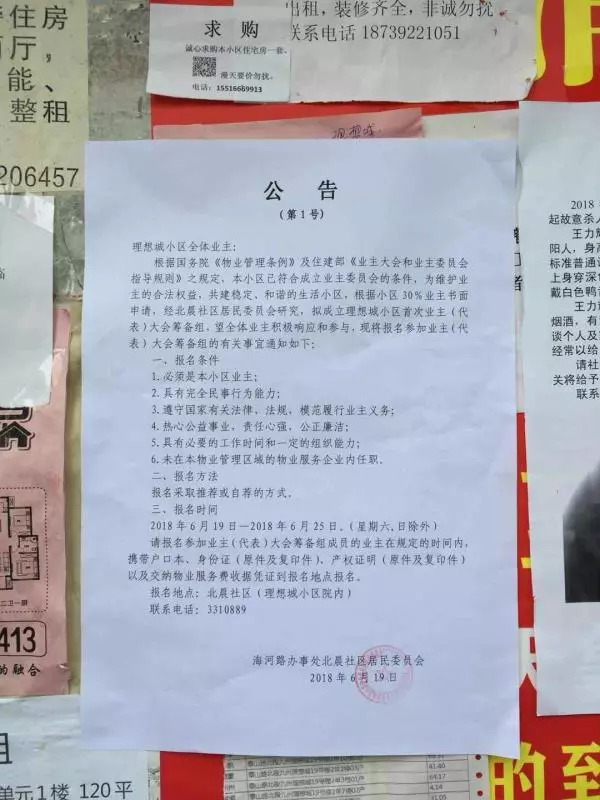 住房
厅，
能、
整租
206457
求 购
诚心求购本小区住宅房一套。
漫天要价勿扰。
电话：15516669913
出租，装修齐全，非诚勿扰
联系电话 18739221051
公 告
（第 1 号）
理想城小区全体业主：
根据国务院《物业管理条例》及住建部《业主大会和业主委员会
指导规则》之规定，本小区已符合成立业主委员会的条件，为维护业
主的合法权益，共建稳定、和谐的生活小区，根据小区 30%业主书面
申请，经北晨社区居民委员会研究，拟成立理想城小区首次业主（代
表）大会筹备组，望全体业主积极响应和参与，现将报名参加业主（代
表）大会筹备组的有关事宜通知如下：
一、报名条件
1.必须是本小区业主；
2.具有完全民事行为能力；
3.遵守国家有关法律、法规，模范履行业主义务；
4.热心公益事业，责任心强，公正廉洁；
5.具有必要的工作时间和一定的组织能力；
6.未在本物业管理区域的物业服务企业内任职。
二、报名方法
报名采取推荐或自荐的方式。
三、报名时间
2018 年 6 月 19 日—2018 年 6 月 25 日。（星期六、日除外）
请报名参加业主（代表）大会筹备组成员的业主在规定的时间内，
携带户口本、身份证（原件及复印件）、产权证明（原件及复印件）
以及交纳物业服务费收据凭证到报名地点报名。
报名地点：北晨社区（理想城小区院内）
联系电话：3310889
海河路办事处北晨社区居民委员会
2018 年 6 月 19 日
2018
起故意杀人
王力
阳人，身高
标准普通话
上身穿深
戴白色鸭
王力
烟酒，有
谈个人及
经常以给
请社
关将给予
联系
二卫一厨
413
的融合
租
单元1楼 120平
的致